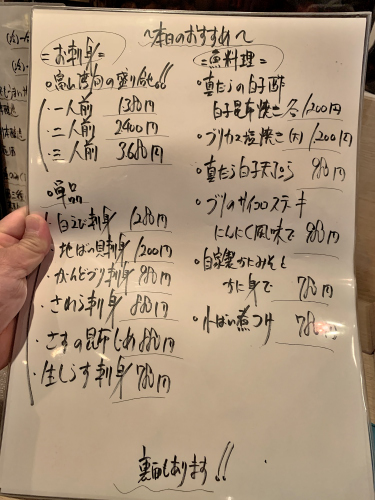 〜本日のおすすめ〜
=お刺身=
○富山湾の盛り合せ!!
・一人前 1380円
・二人前 2400円
・三人前 3680円
○単品
・白えび刺身 1280円
・地ばい貝刺身 1200円
・がんどぶり刺身 880円
・さわら刺身 880円
・さすの昆布じめ 880円
・生しらす刺身 780円
=魚料理=
・真だらの白子酢
白子昆布焼き 各1200円
・ブリカマ塩焼き(大) 1200円
・真だら白子天ぷら 980円
・ブリのサイコロステーキ
にんにく風味で 980円
・自家製かにみそと
かに身で 780円
・小ばい煮つけ 780円
裏面もあります!!